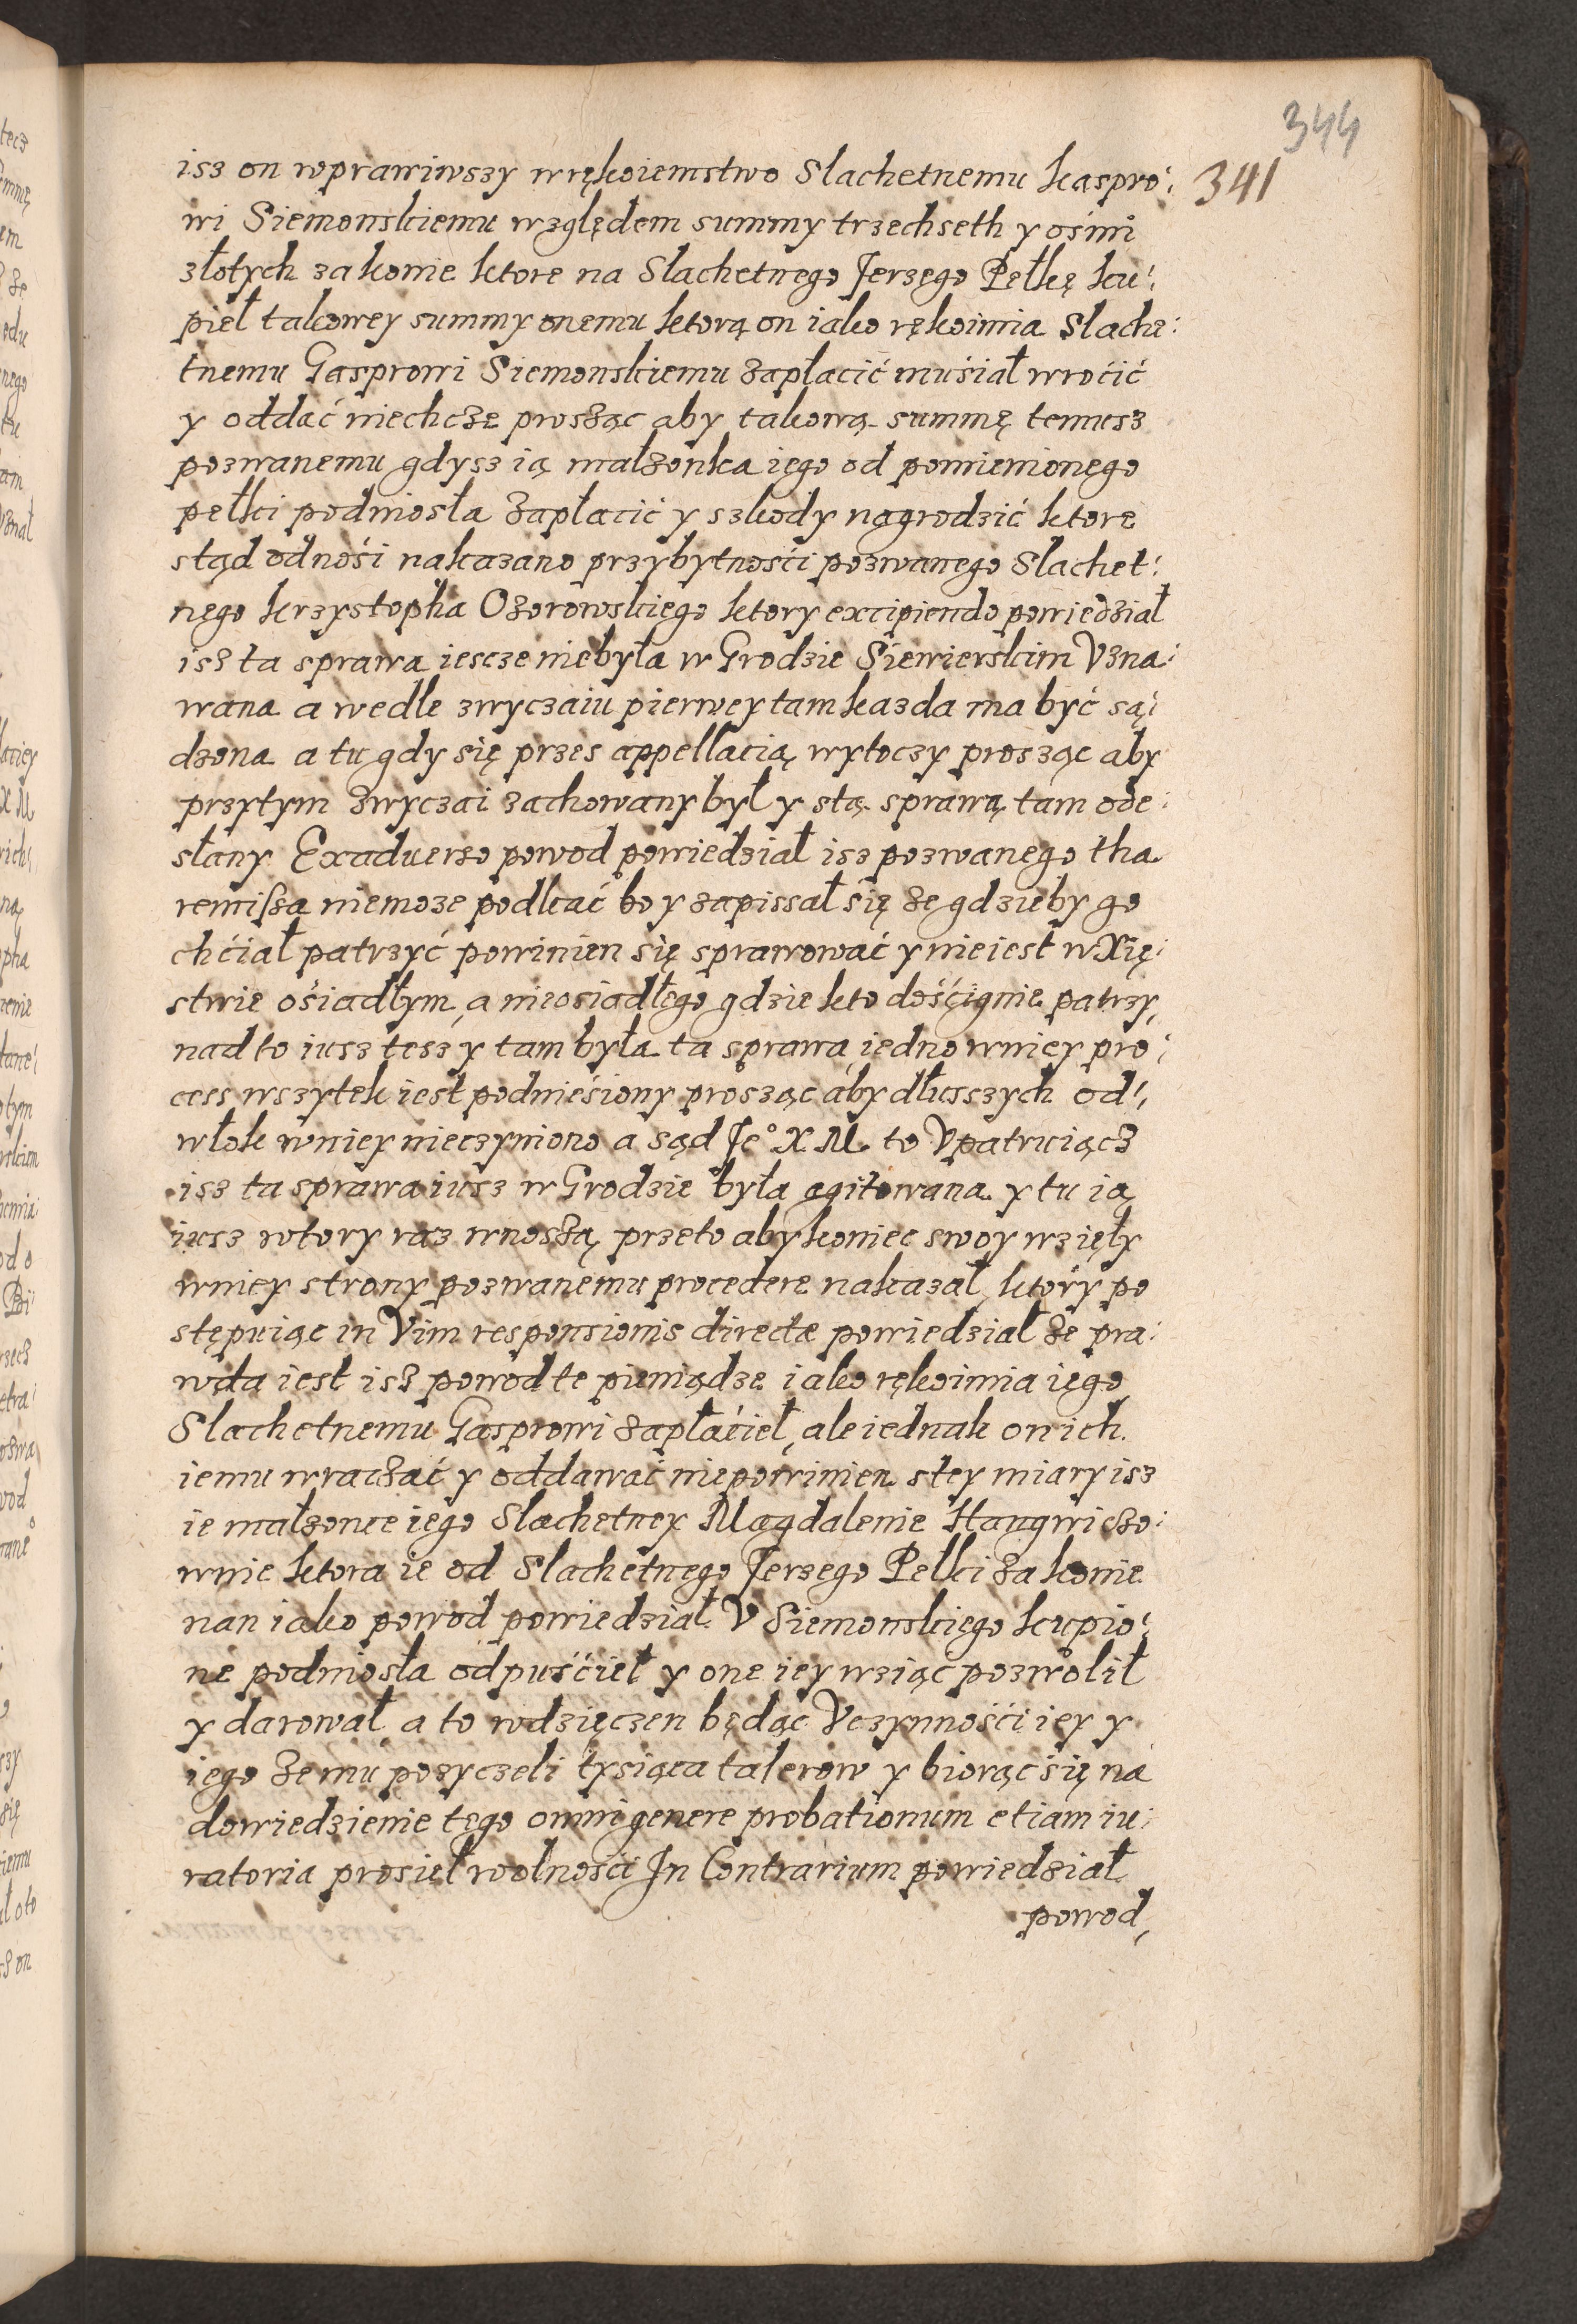 344
341
isz on wprawiwszy w rękoiemstwo Slachetnemu Kaspro:
wi Siemonskiemu względem summy trzechseth y ośmi
złotych za konie ktore na Slachetnego Jerzego Pełkę ku:
pieł takowey summy onemu ktorą on iako rękoimia Slache:
tnemu Gasprowi Siemonskiemu zapłacić muśiał wroćić
y oddać niechcze prosząc aby takową summę temusz
pozwanemu gdysz ią małzonka iego od pomienionego
pełki podniosła zapłacić y szkody nagrodzić ktore
stąd odnośi nakazano przy bytnośći pozwanego Slachet:
nego Krzystopha Ozorowskiego ktory excipiendo powiedział
isz ta sprawa iescze niebyła w Grodzie Siewierskim Vzna:
wana a wedle zwyczaiu pierwey tam kazda ma być są:
dzona a tu gdy się przes appellacią wytoczy prosząc aby
przytym zwyczai zachowany był y stą sprawą tam ode:
słany Exaduerso powod powiedział isz pozwanego tha
remissa niemoze podkać bo y zapissał się ze gdzieby go
chćiał patrzyć powinien się sprawować y nieiest w Xię:
stwie ośiadłym, a nieosiadłego gdzie kto dośćignie patrzy,
nad to iusz tesz y tam była ta sprawa iedno w niey pro:
cess wszytek iest podnieśiony prosząc aby dłusszych od:
włok w niey nieczyniono a sąd Je° X M. to Vpatruiącz
isz ta sprawa iusz w Grodzie była agitowana y tu ią
iusz wtory raz wnoszą przeto aby koniec swoy wzięły
w niey strony pozwanemu procedere nakazał, ktory po
stępuiąc in Vim responsionis directæ powiedział ze pra:
wda iest isz powod te pieniądze iako rękoimia iego
Slachetnemu Gasprowi zapłaćieł, ale iednak on ich
iemu wraczać y oddawać niepowinien stey miary isz
ie małzonce iego Slachetney Magdalenie Hangwiczo:
wnie ktora ie od Slachetnego Jerzego Pełki za konie
nan iako powod powiedział V Siemonskiego kupio:
ne podniosła odpuśćieł y one iey wziąc pozwolił
y darował a to wdzięczen będąc Vczynnośći iey y
iego ze mu pozyczeli tysiąca talerow y biorąc się na
dowiedzienie tego omni genere probationum etiam iu:
ratoria prosieł wolnosci In Contrarium powiedział
powod,